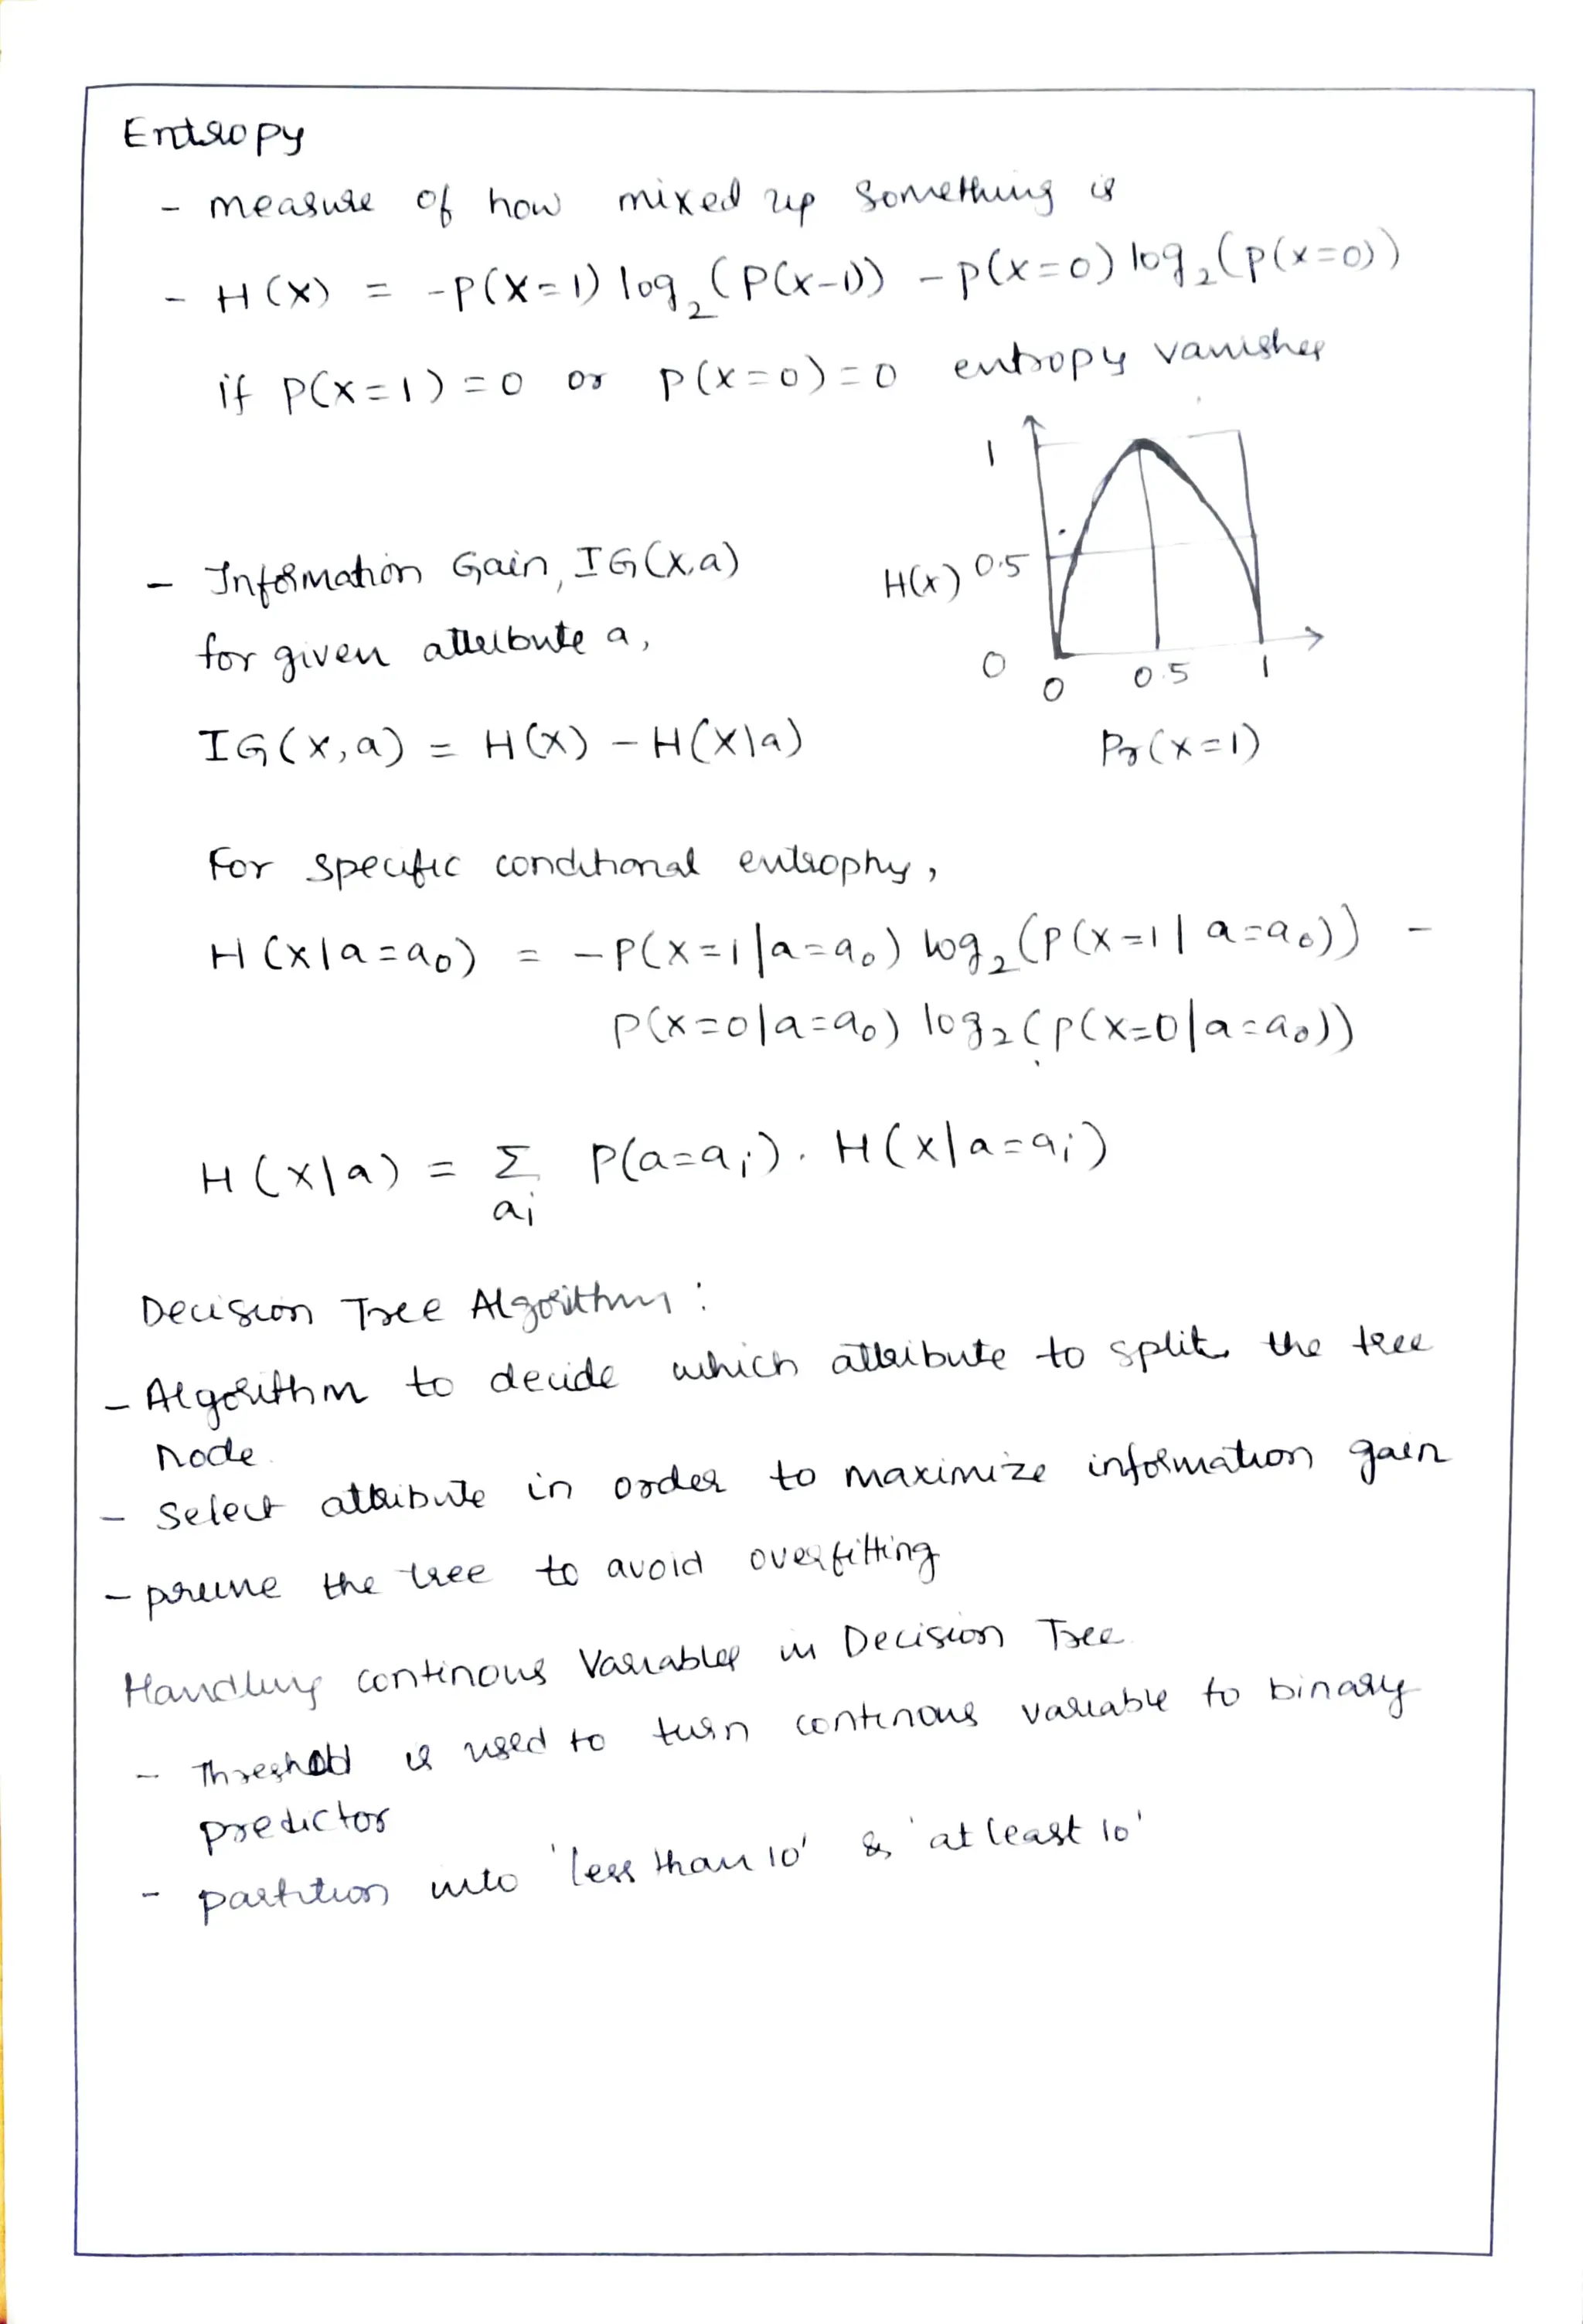 Entropy
- measure of how mixed up something is
- H(X) = -P(X=1) log₂ (P(x-1)) - P(x=0) log₂(P(x=0))
if P(x=1)=0 or P(x=0)=0 entropy vanishes
1
- Information Gain, IG(X,a)
H(x) 0.5
for given attribute a,
0
0 0.5 1
IG(x,a) = H(X) - H(X|a)
Pr(x=1)
For specific conditional entrophy,
H(x|a=a₀) = -P(x=1|a=a₀) log₂(P(x=1|a=a₀)) -
P(x=0|a=a₀) log₂(P(x=0|a=a₀))
H(x|a) = Σ P(a=aᵢ). H(x|a=aᵢ)
aᵢ
Decision Tree Algorithm:
- Algorithm to decide which attribute to split the tree
node.
- Select attribute in order to maximize information gain
- prune the tree to avoid overfitting
Handling continous Variables in Decision Tree
- Threshold is used to turn continous variable to binary
predictor
- partition into 'less than 10' & 'at least 10'